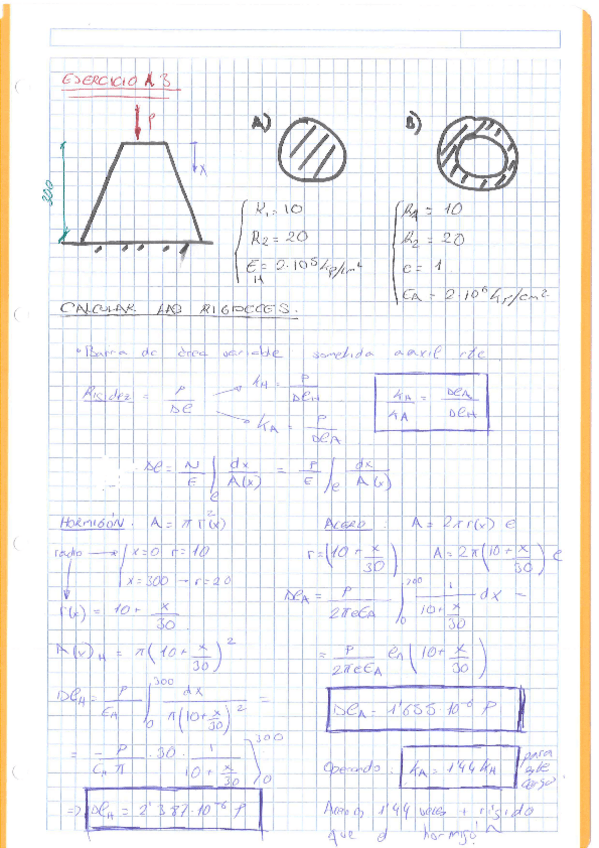 EJERCICIO 1.3
P
x
300
A)
B)
R₁ = 10
R₂ = 20
E_H = 2·10⁵ kp/cm²
R₁ = 10
R₂ = 20
e = 1
E_A = 2·10⁶ kp/cm²
CALCULAR LAS RIGIDECES.
• Barra de área variable sometida a axil cte.
Rigidez = P/Δl
k_H = P/Δl_H
k_A = P/Δl_A
k_H/k_A = Δl_A/Δl_H
Δl = N/E ∫_e dx/A(x) = P/E ∫_e dx/A(x)
HORMIGÓN. A = π r²(x)
radio → x=0 r=10
x=300 → r=20
r(x) = 10 + x/30
A(x)_H = π(10 + x/30)²
Δl_H = P/E_A ∫₀³⁰⁰ dx/π(10+x/30)² =
= - P/E_A π · 30 · 1/(10 + x/30) ]₀³⁰⁰
⇒ Δl_H = 2'387·10⁻⁶ P
ACERO. A = 2πr(x) e
r = (10 + x/30) A = 2π(10 + x/30) e
Δl_A = P/2πeE_A ∫₀³⁰⁰ 1/(10 + x/30) dx =
= P/2πeE_A ln(10 + x/30)
Δl_A = 1'655·10⁻⁶ P
Operando: k_A = 1'44 k_H para este
Acero 1'44 veces + rígido
que el hormigó